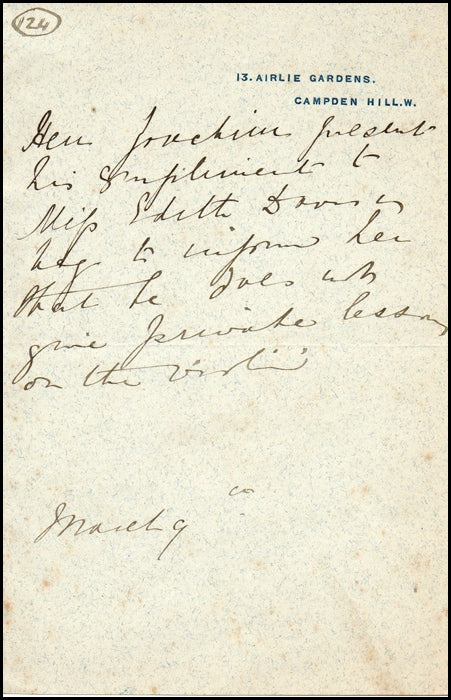 124
13. AIRLIE GARDENS.
CAMPDEN HILL.W.
Herr Joachim presents
his compliment to
Miss Edith Davis &
beg to inform her
that he does not
give private lessons
on the violin
March 9